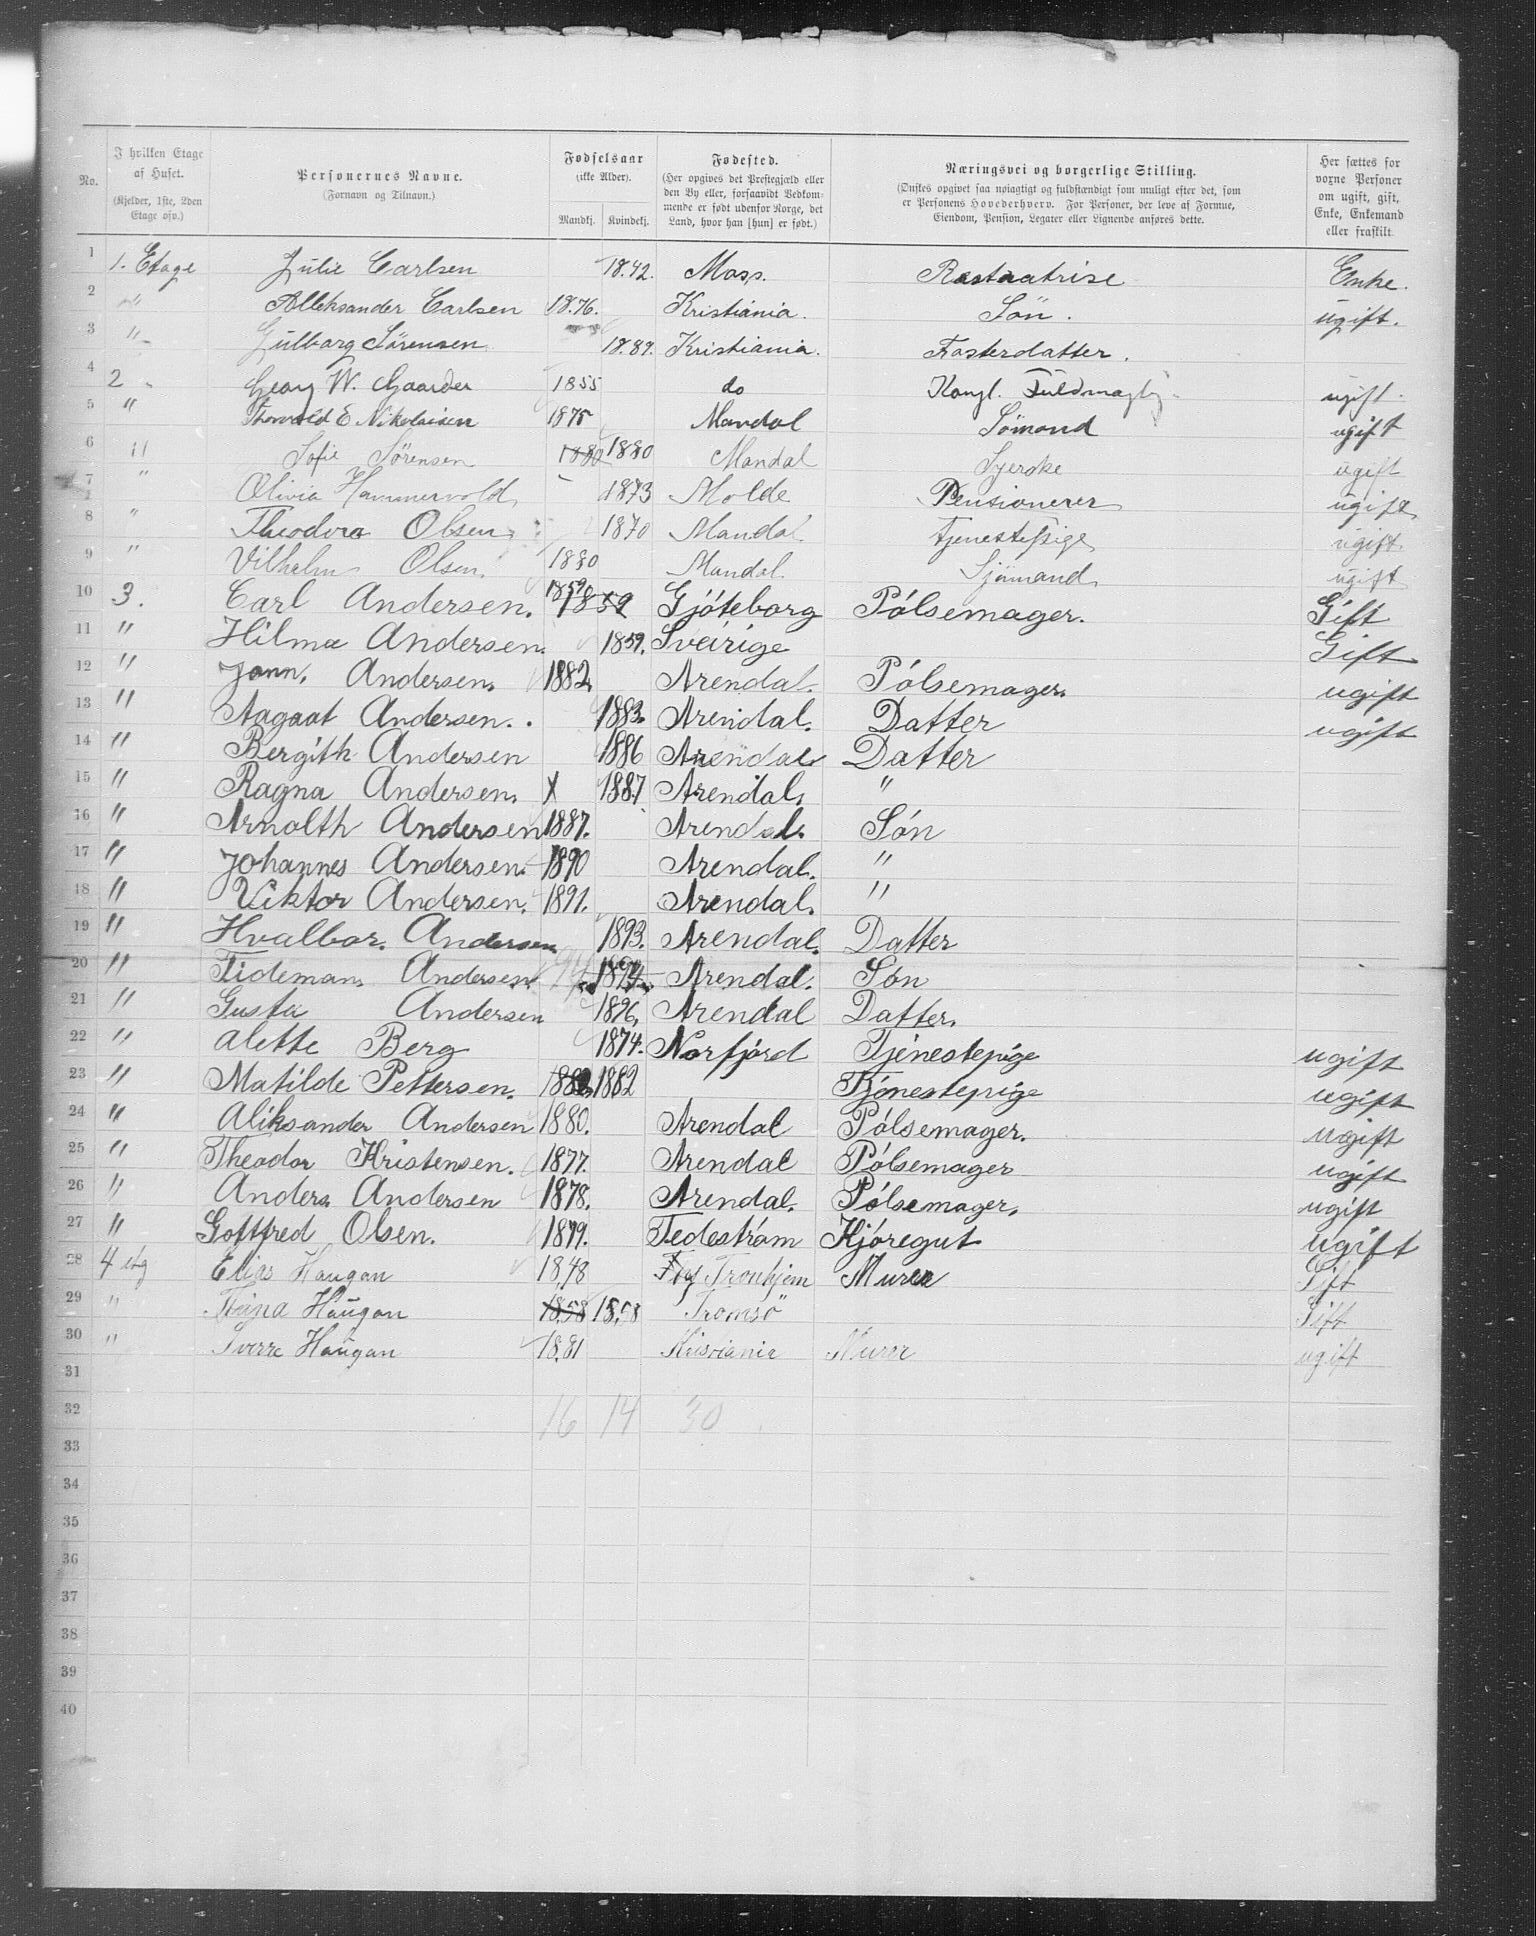 No. | I hvilken Etage af Huset. (Kjelder, 1ste, 2den Etage osv.) | Personernes Navne. (Fornavn og Tilnavn.) | Fødselsaar (ikke Alder). Mandkj. | Kvindekj. | Fødested. (Her opgives det Prestegjæld eller den By eller, forsaavidt Vedkommende er født udenfor Norge, det Land, hvor han [hun] er født.) | Næringsvei og borgerlige Stilling. (Ønskes opgivet saa nøiagtigt og fuldstændigt som muligt efter det, som er Personens Hovederhverv. For Personer, der leve af Formue, Eiendom, Pension, Legater eller Lignende anføres dette. | Her sættes for voxne Personer om ugift, gift, Enke, Enkemand eller fraskilt.
1 1. Etage Julie Carlsen 18.42. Moss. Enke.
2 " Alleksander Carlsen 18.76. Kristiania. Søn. ugift.
3 " Gulborg Sørensen 18.89. Kristiania. Fosterdatter.
4 2 " Georg W. Gaarder 1855 do Kongl. Fuldmægtig ugift.
5 " Thorvald E Nikolaisen 1875 Mandal Sömand ugift
6 " Sofie Sørensen 1880 1880 Mandal Syerske ugift
7 " Olivia Hammervold 1873 Molde Pensionerer ugift
8 " Theodora Olsen 1870 Mandal tjenestepige ugift
9 " Vilhelm Olsen. 1880 Mandal Sjömand ugift
10 3. Carl Andersen. 1859 1859 Gjöteborg Pólsemager. Gift
11 " Hilma Andersen. 1859. Sveirige Gift
12 " Jonn. Andersen. 1882. Arendal. Pólsemager. ugift
13 " Aagaat Andersen. 1883. Arendal. Datter ugift
14 " Bergith Andersen 1886 Arendal Datter
15 " Ragna Andersen. X 1887 Arendal. "
16 " Arnolth Andersen 1887. Arendal. Són
17 " Johannes Andersen. 1890 Arendal. "
18 " Viktor Andersen. 1891. Arendal. "
19 " Hvalbor. Andersen 1893. Arendal. Datter
20 " Tideman Andersen 94 1894 Arendal. Són
21 " Gusta Andersen 1896. Arendal Datter.
22 " Alette Berg 1874. Norfjord Tjenestepige ugift
23 " Matilde Pettersen. 1882 1882 Tjónestepige ugift
24 " Aliksander Andersen 1880. Arendal Pólsemager. ugift
25 " Theodor Kristensen. 1877. Arendal Pólsemager ugift
26 " Anders Andersen 1878. Arendal. Pólsemager. ugift
27 " Gottfred Olsen. 1879. Tedestróm Kjóregut ugift
28 4 etg Elias Haugan 18,48 Tronhjem Murer Gift
29 " Haugan 18.58 18.58 Tromsö Gift
30 " Sverre Haugan 18.81 Kristiania Murer ugift
31
32 16 14 30
33
34
35
36
37
38
39
40